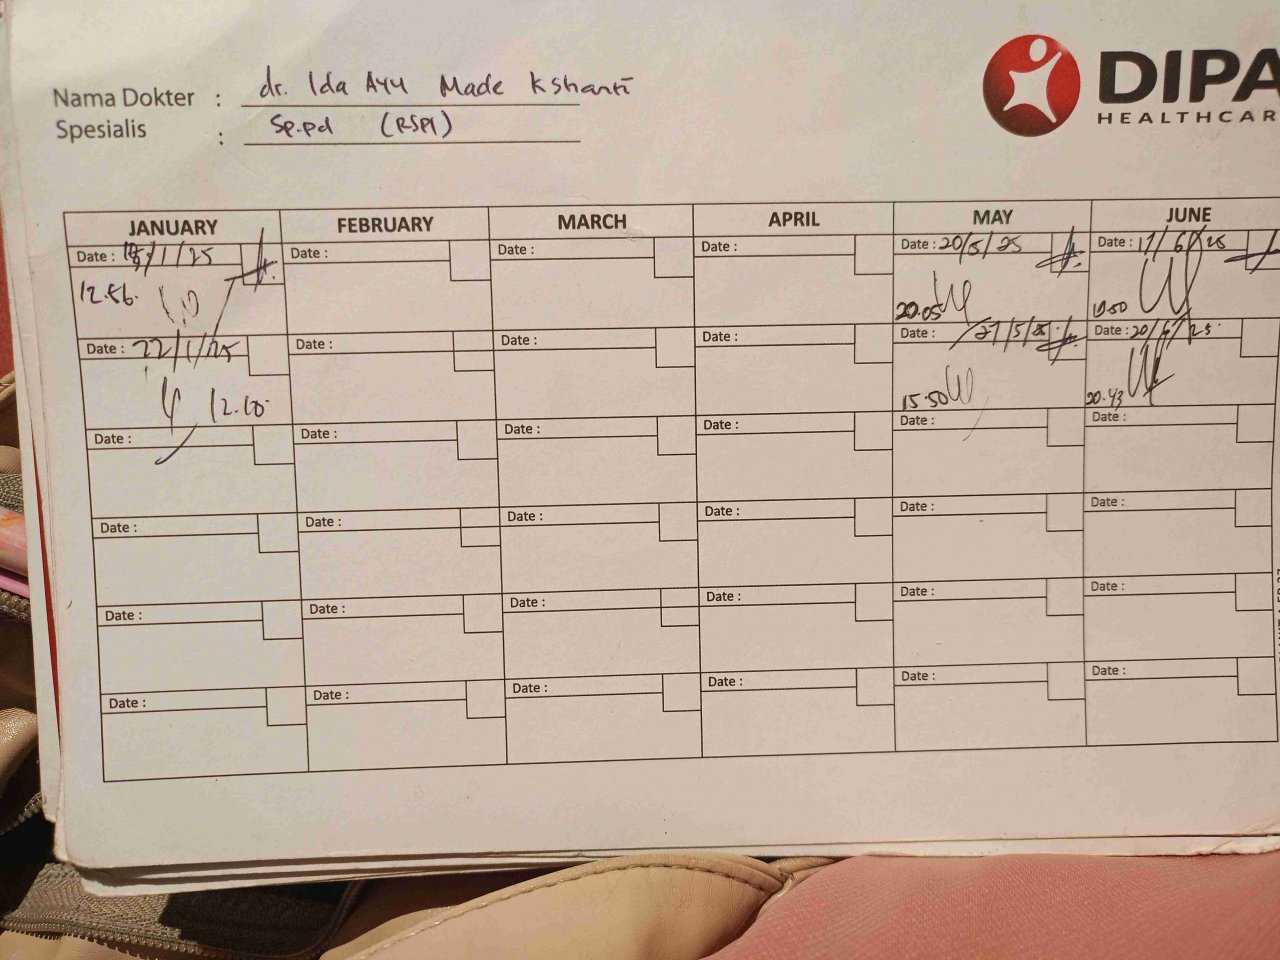 dr. Ida Ayu Made Kshanti
Nama Dokter :
Sp.pd (RSPI)
Spesialis :
DIPA
HEALTHCAR
JANUARY FEBRUARY MARCH APRIL MAY JUNE
Date : /1/25 Date : Date : Date : Date : 20/5/25 Date : 17/6/25
12.56. 20.05
Date : 22/1/25 Date : Date : Date : Date : 27/5/25 Date : 20/6/25
15.50 20.43
Date : Date : Date : Date : Date : Date :
Date : Date : Date : Date : Date : Date :
Date : Date : Date : Date : Date : Date :
Date : Date : Date : Date : Date : Date :